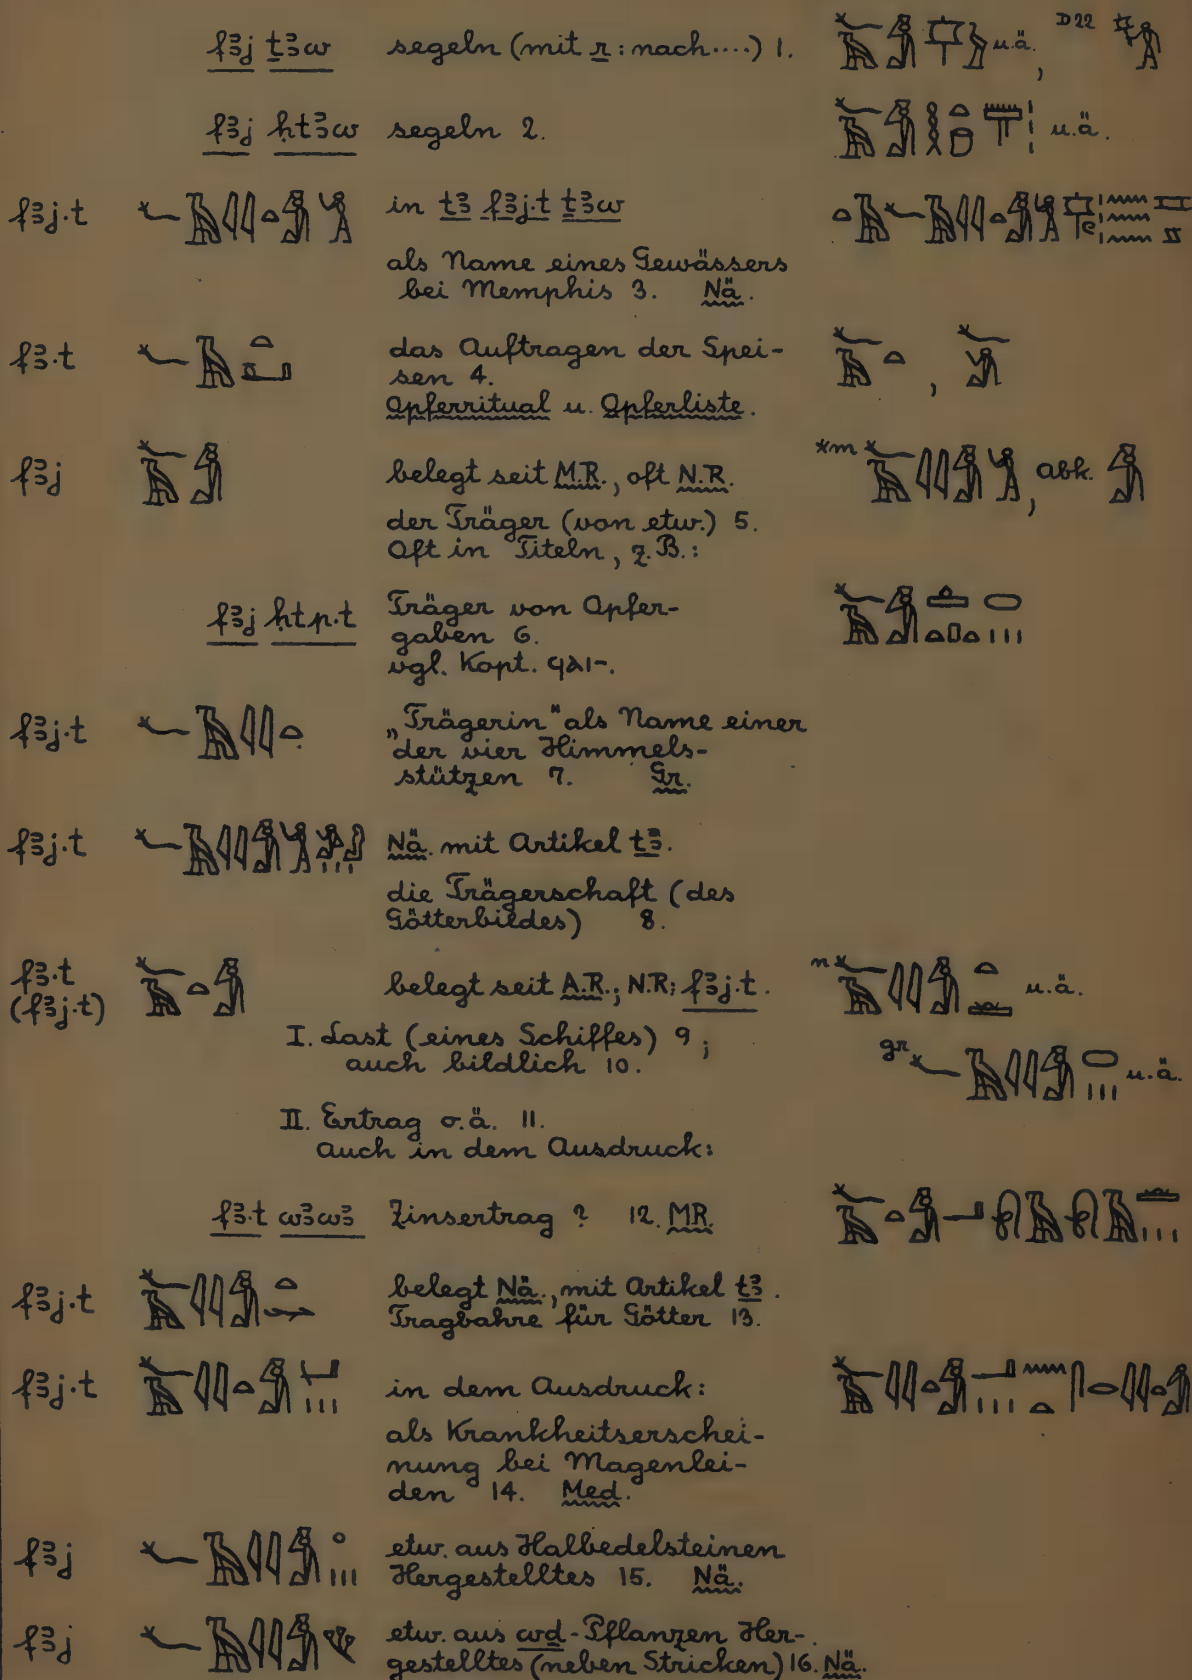 fꜣj ṯꜣw segeln (mit r : nach....) 1. u.ä., D22
fꜣj ḥtꜣw segeln 2. u.ä.
fꜣj.t in tꜣ fꜣj.t ṯꜣw
als Name eines Gewässers
bei Memphis 3. Nä.
fꜣ.t das Auftragen der Spei-
sen 4. ,
Opferritual u. Opferliste.
fꜣj belegt seit M.R., oft N.R. *m , abk.
der Träger (von etw.) 5.
Oft in Titeln, z.B.:
fꜣj ḥtp.t Träger von Opfer-
gaben 6.
vgl. Kopt. ϥⲁⲓ-.
fꜣj.t „Trägerin" als Name einer
der vier Himmels-
stützen 7. Gr.
fꜣj.t Nä. mit Artikel tꜣ.
die Trägerschaft (des
Götterbildes) 8.
fꜣ.t
(fꜣj.t) belegt seit A.R.; N.R; fꜣj.t. n u.ä.
I. Last (eines Schiffes) 9;
auch bildlich 10. gr u.ä.
II. Ertrag o.ä. 11.
auch in dem Ausdruck:
fꜣ.t wꜣwꜣ Zinsertrag ? 12. MR.
fꜣj.t belegt Nä., mit Artikel tꜣ.
Tragbahre für Götter 13.
fꜣj.t in dem Ausdruck:
als Krankheitserschei-
nung bei Magenlei-
den 14. Med.
fꜣj etw. aus Halbedelsteinen
Hergestelltes 15. Nä.
fꜣj etw. aus wḏ-Pflanzen Her-
gestelltes (neben Stricken) 16. Nä.